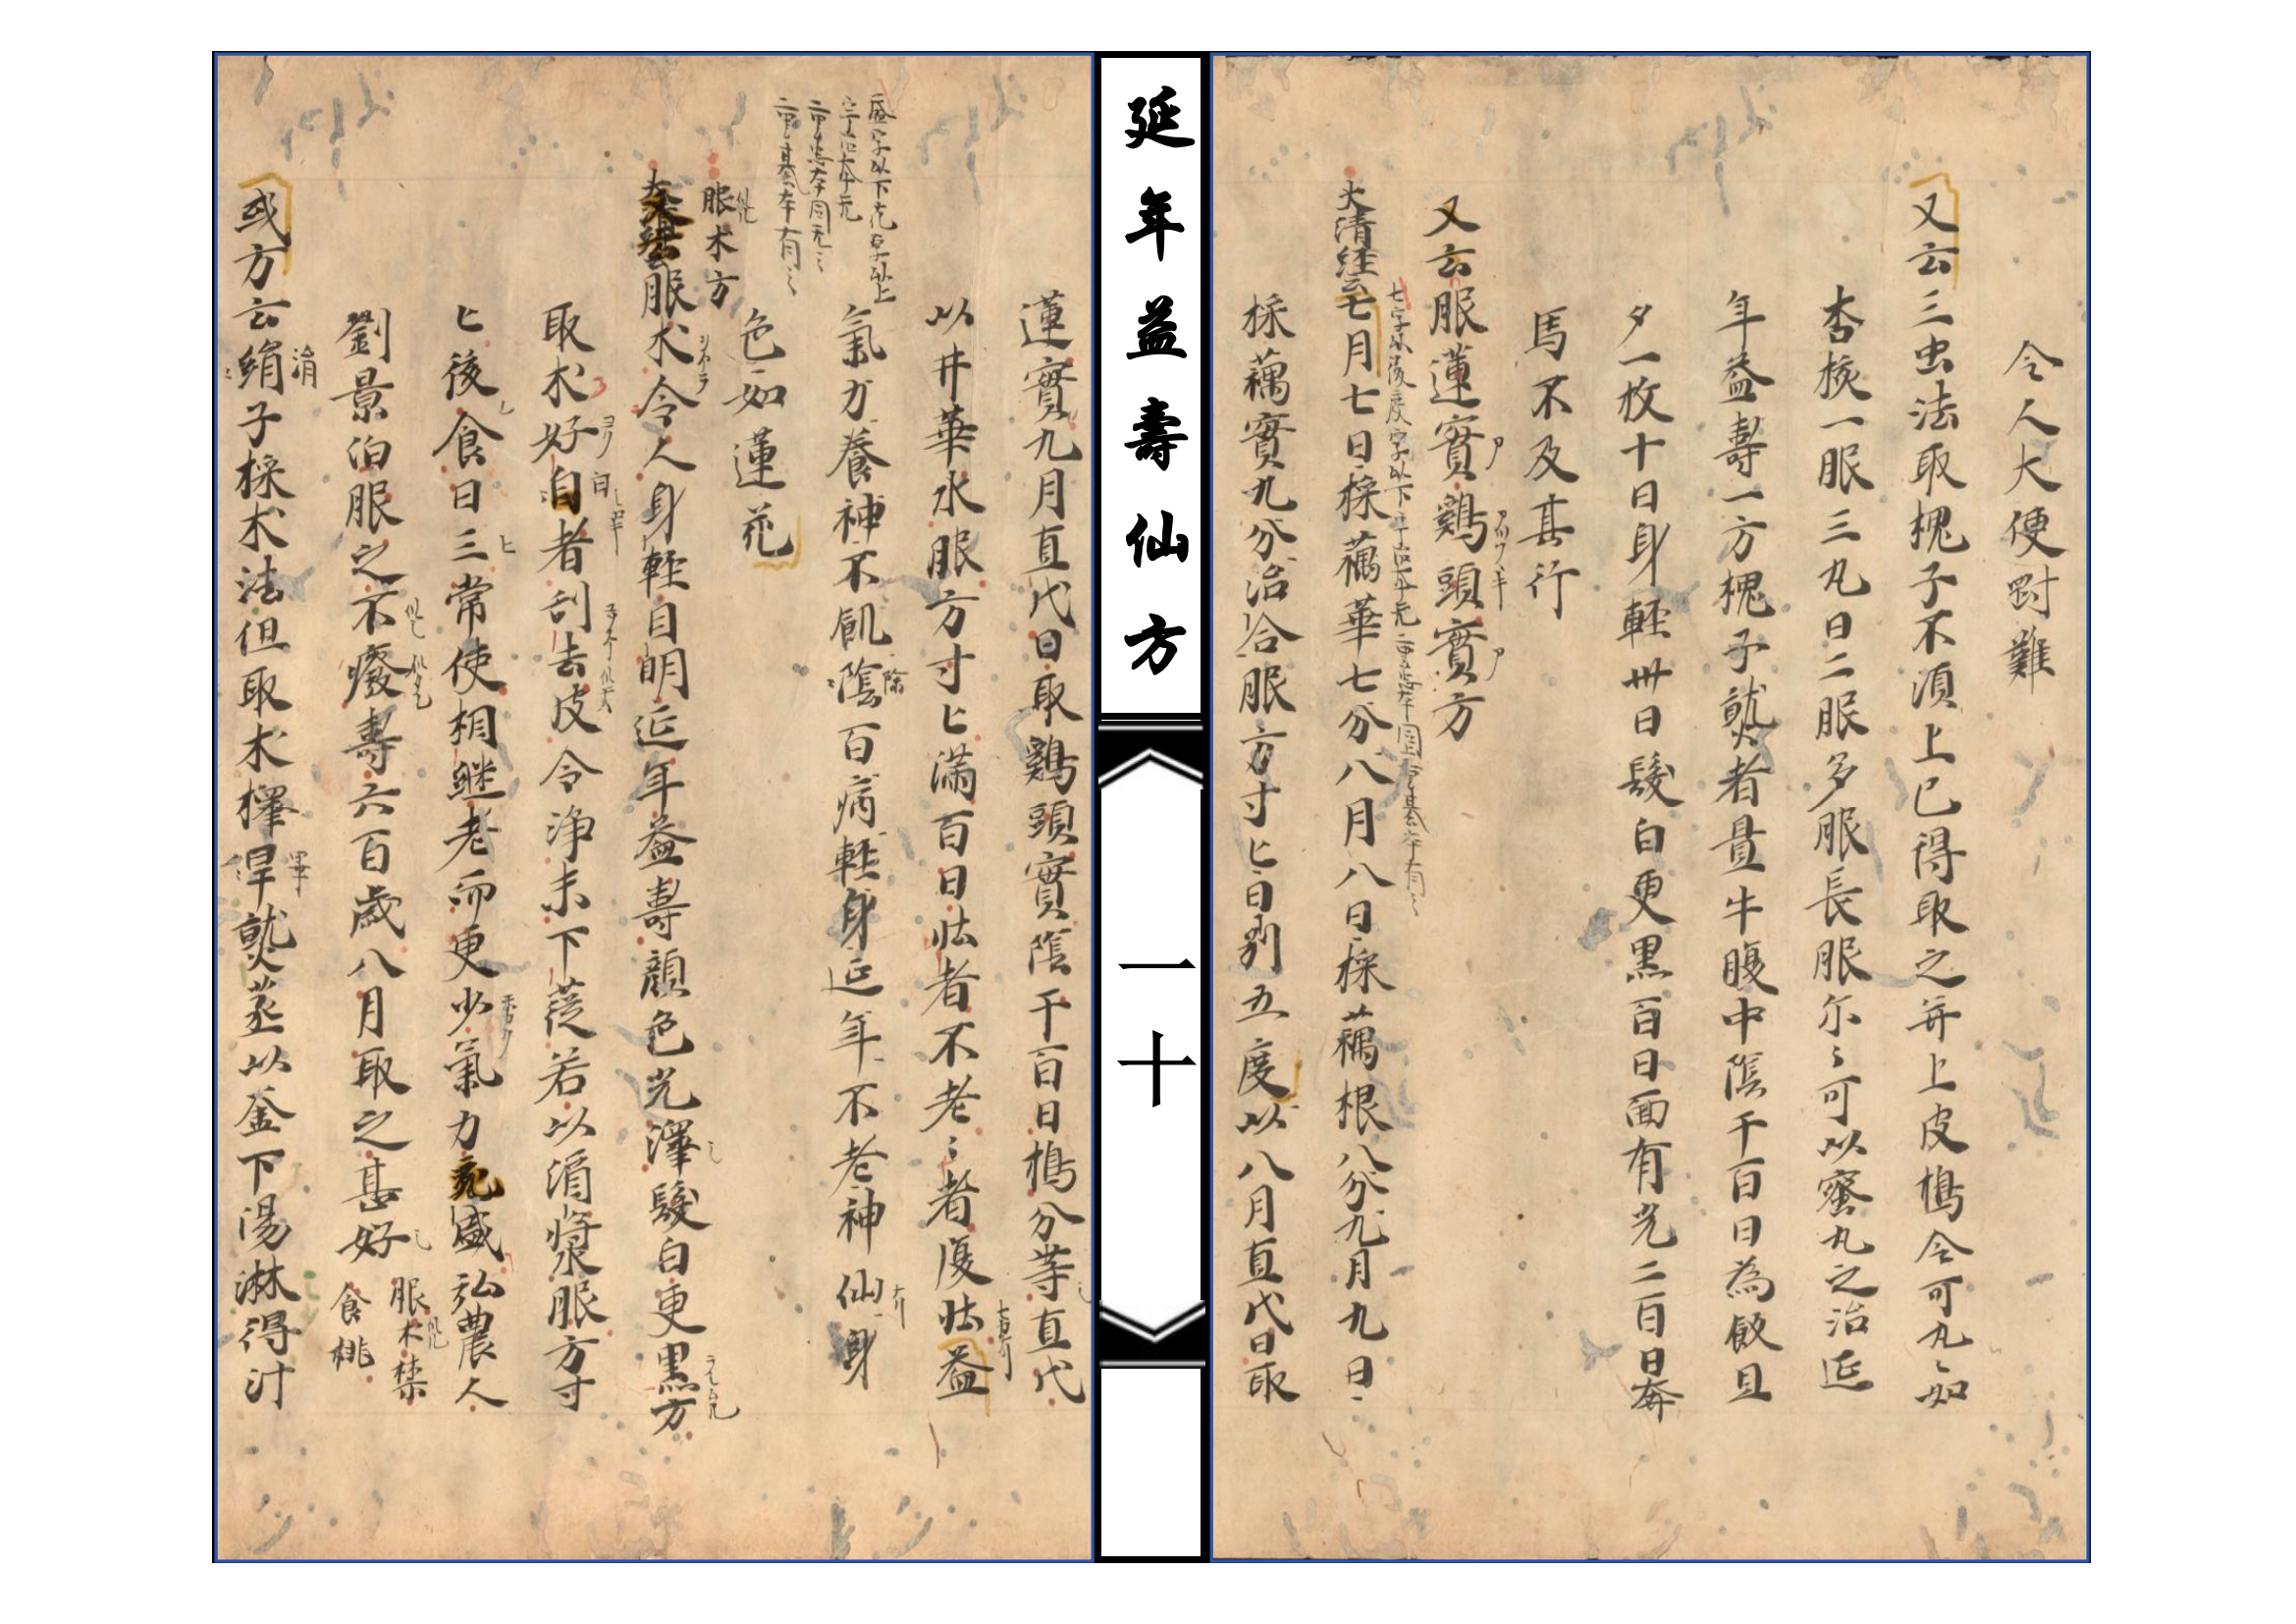 令人大便對難
又云三虫法取槐子不須上巳得取之并上皮搗令可丸〻如
杏核一服三丸日二服多服長服尓〻可以蜜丸之治延
年益壽一方槐子熟者置牛腹中陰干百日為飲旦
夕一枚十日身輕卅日髮白更黑百日面有光二百日奔
馬不及其行
又云服蓮實鷄頭實方
大清経云七月七日採藕華七分八月八日採藕根八分九月九日
採藕實九分治合服方寸匕日別五度以八月直代日取
延年益壽仙方
一十
蓮實九月直代日取鷄頭實陰干百日搗分等直代
以井華水服方寸匕滿百日怯者不老〻者復怯益
氣力養神不飢陰百病輕身延年不老神仙身
色如蓮花
盛字以下花草以上
字治本无
服朮方
服朮令人身輕目明延年益壽顔色光澤髮白更黑方
取朮好白者刮去皮令淨末下蓰若以涓將水服方寸
匕後食日三常使相継老而更少氣力盛弘農人
劉景伯服之不癈壽六百歳八月取之甚好
服朮禁
食桃
或方云絹子採朮法但取朮擇熟蒸以釜下湯淋得汁